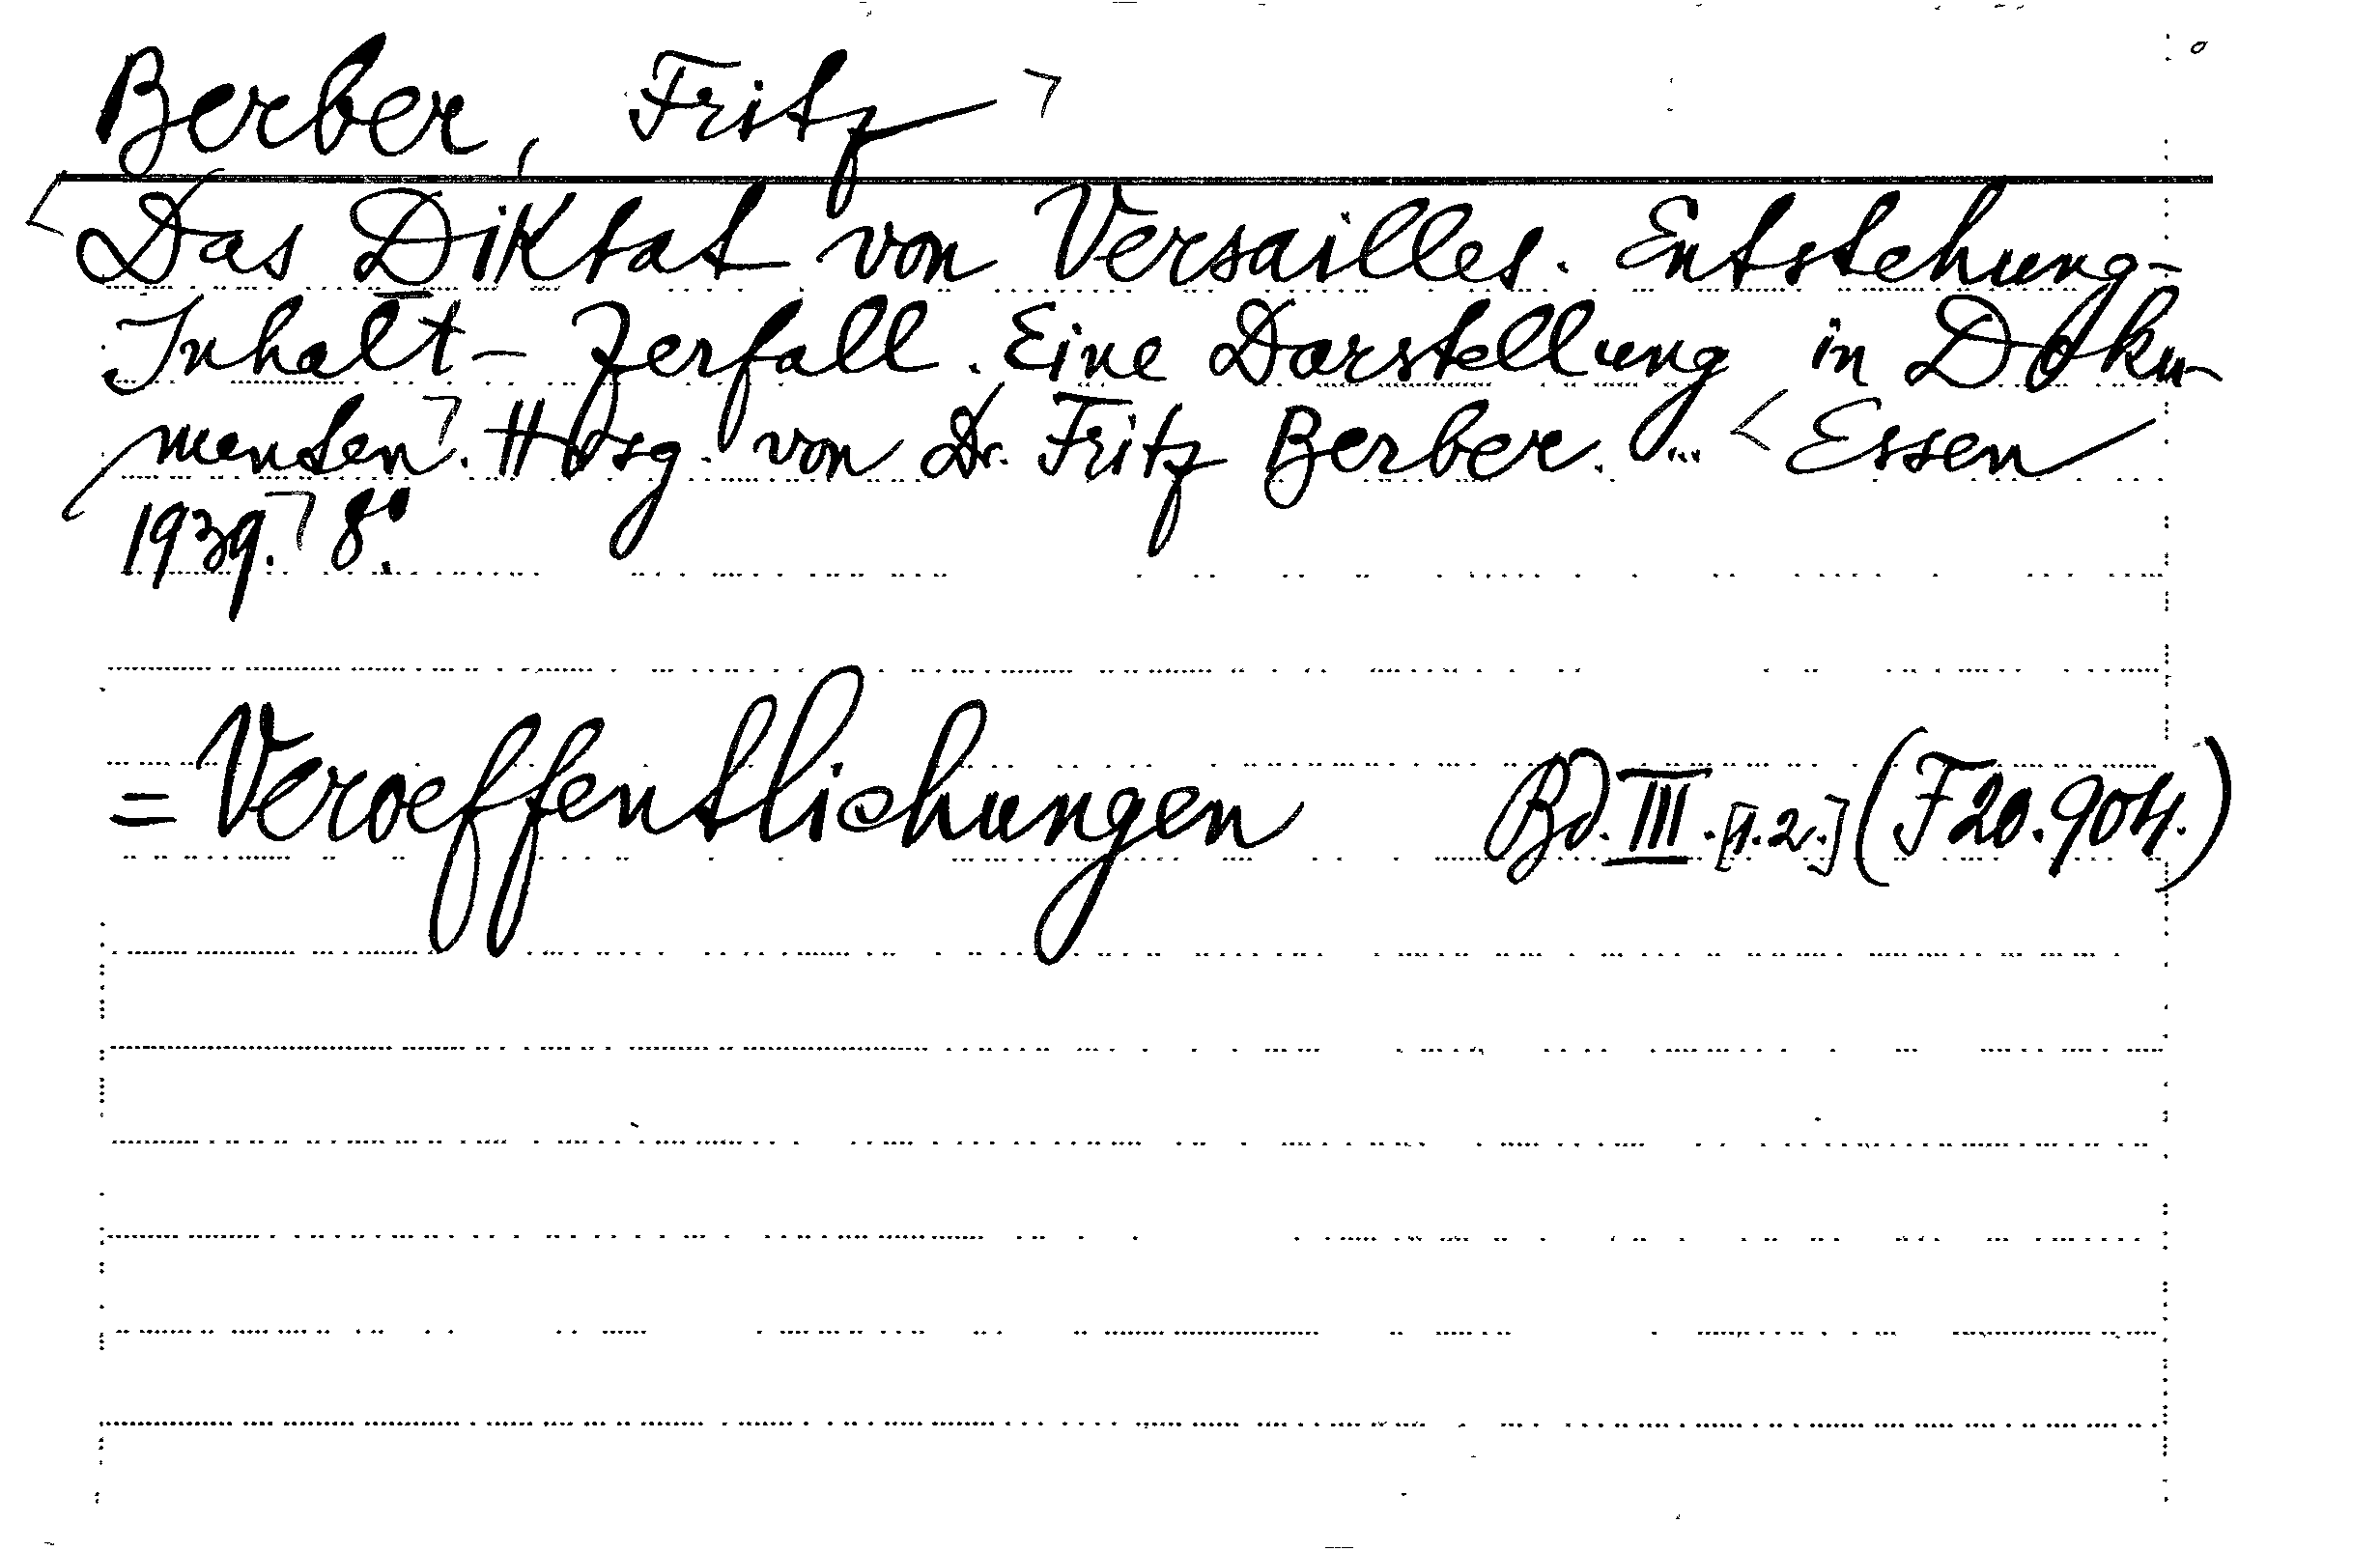 Berber, Fritz
Das Diktat von Versailles. Entstehung-
Inhalt - Zerfall. Eine Darstellung in Doku-
menten. Hrsg. von Dr. Fritz Berber. ... Essen
1939. 8°.
= Veroeffentlichungen Bd. III. [1.2.] (F 20.904.)